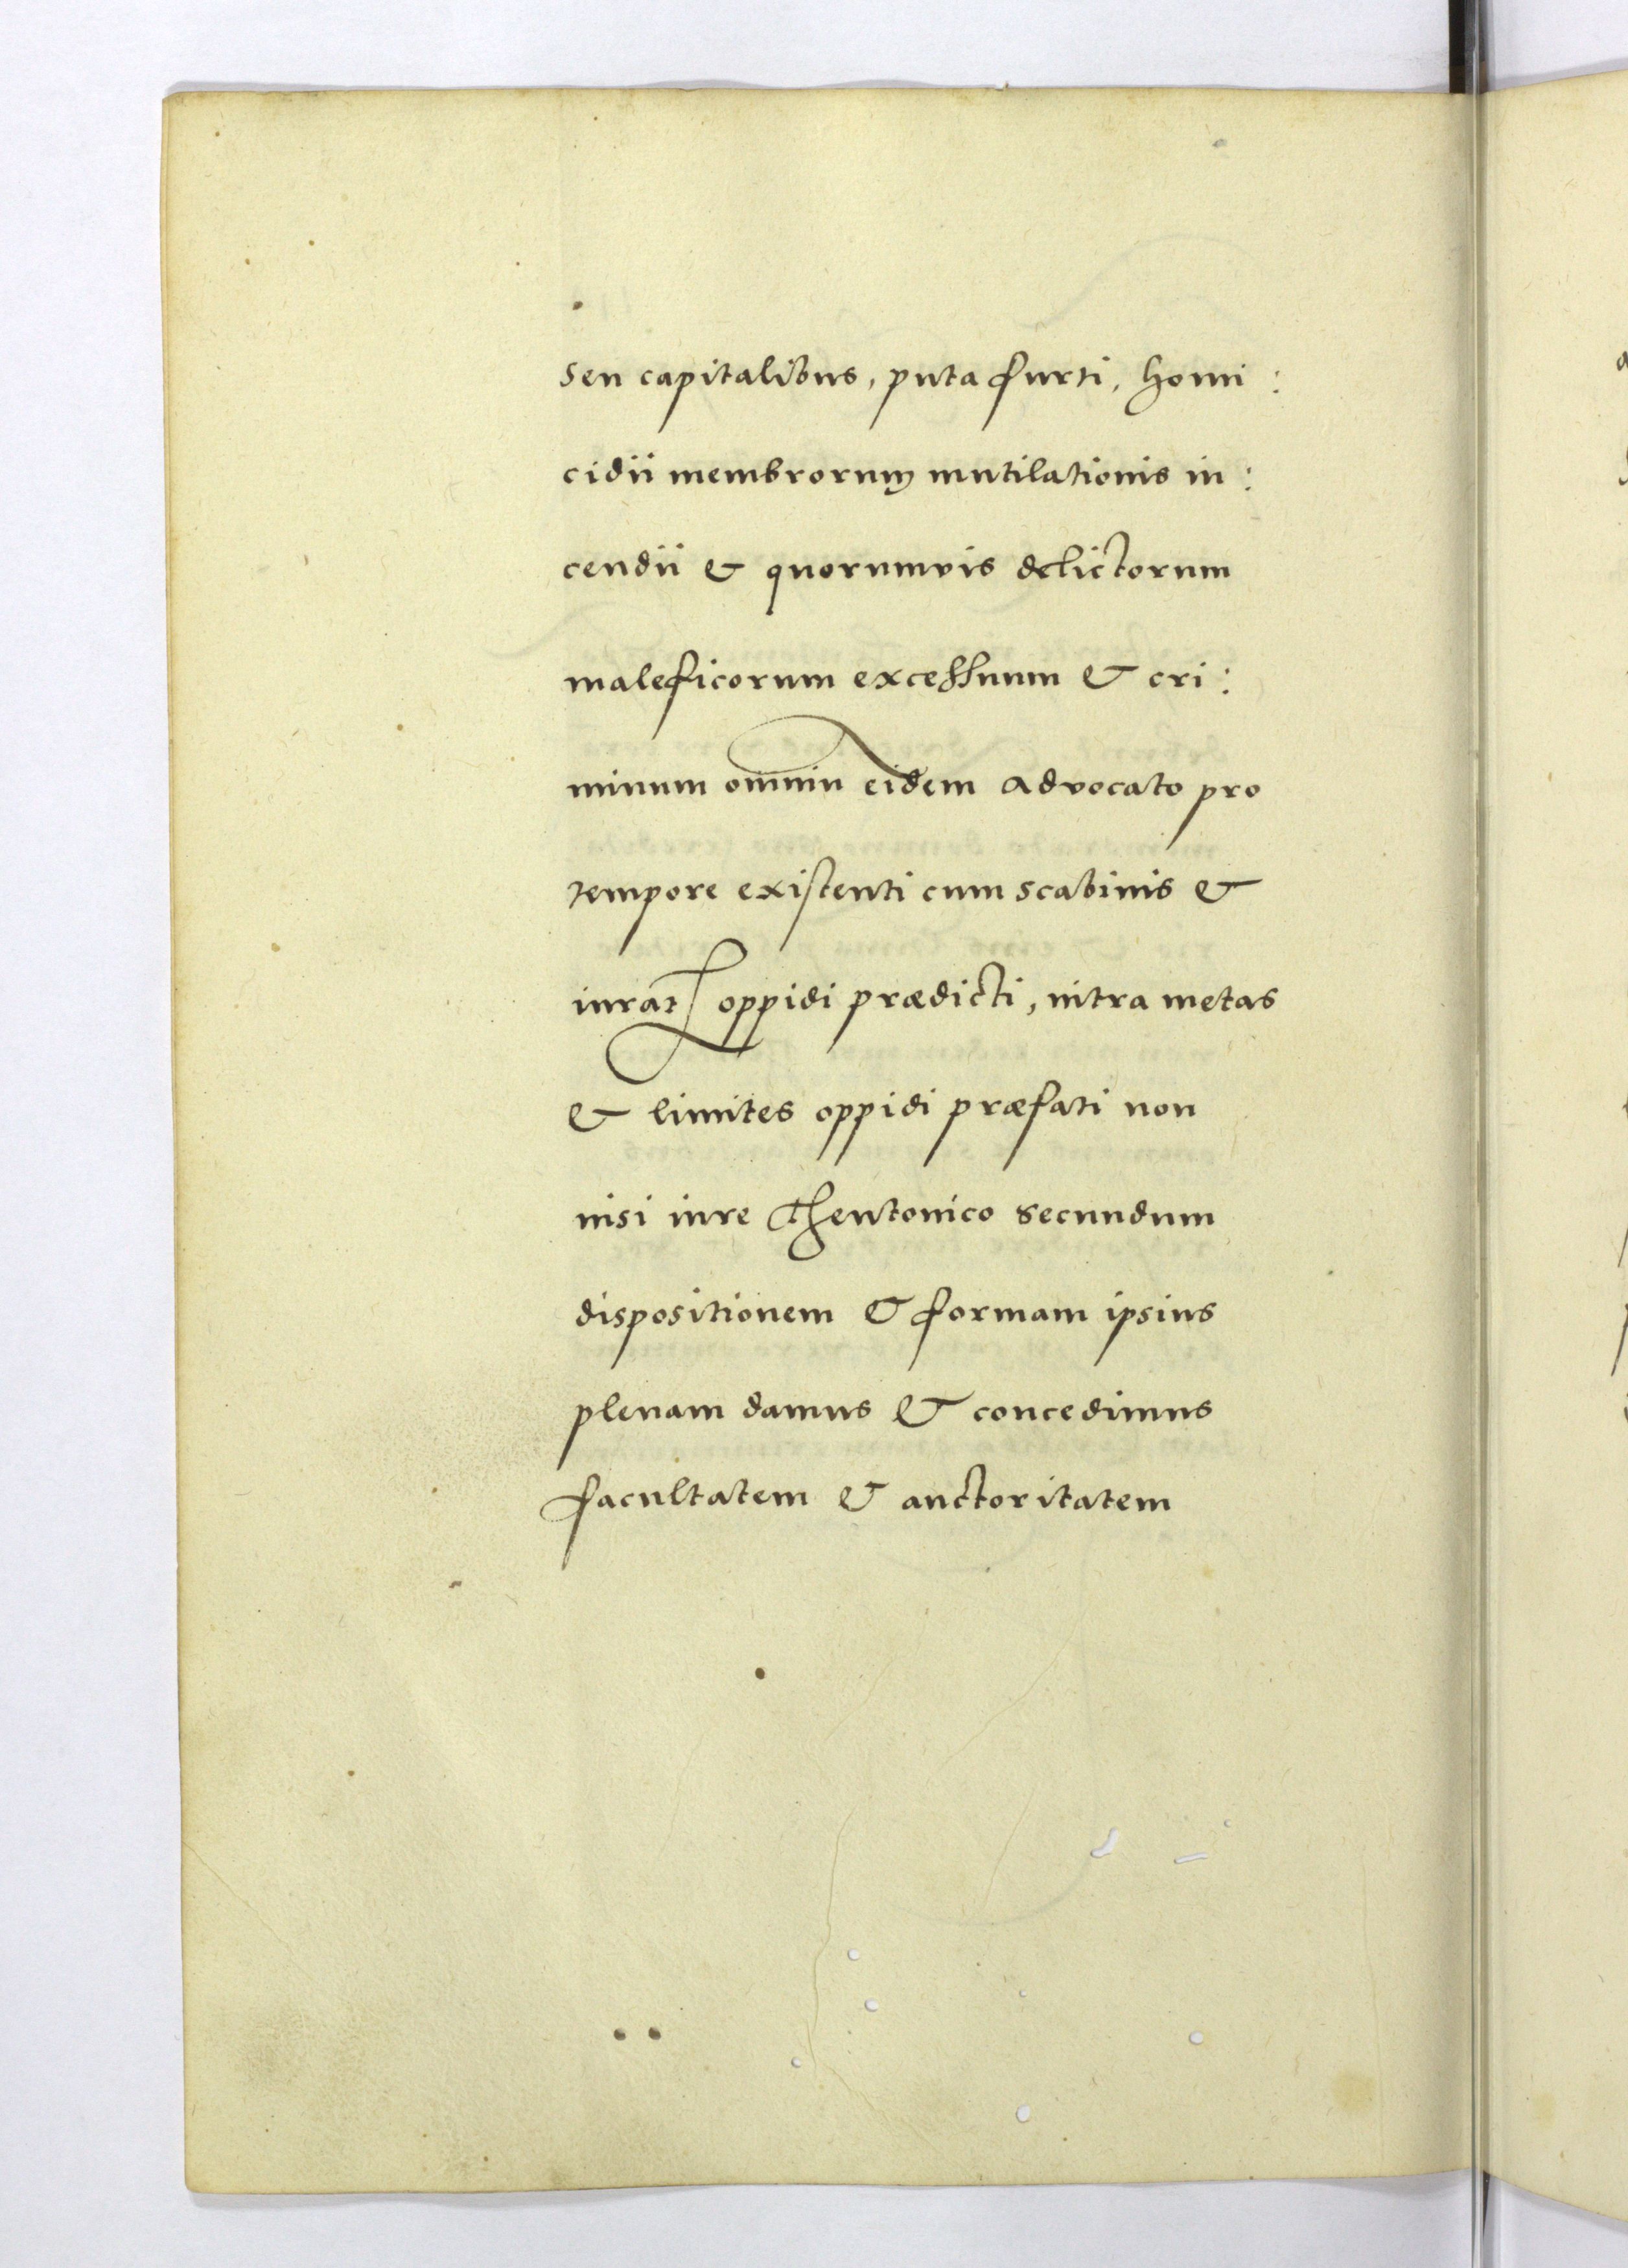 seu capitalibus, puta furti, homi:
cidii membrorum mutilationis in:
cendii & quorumvis delictorum
maleficorum excessuum & cri:
minum omniu eidem advocato pro
tempore existenti cum scabinis &
iurat oppidi prædicti, intra metas
& limites oppidi præfati non
nisi iure Theutonico secundum
dispositionem & formam ipsius
plenam damus & concedimus
facultatem & auctoritatem